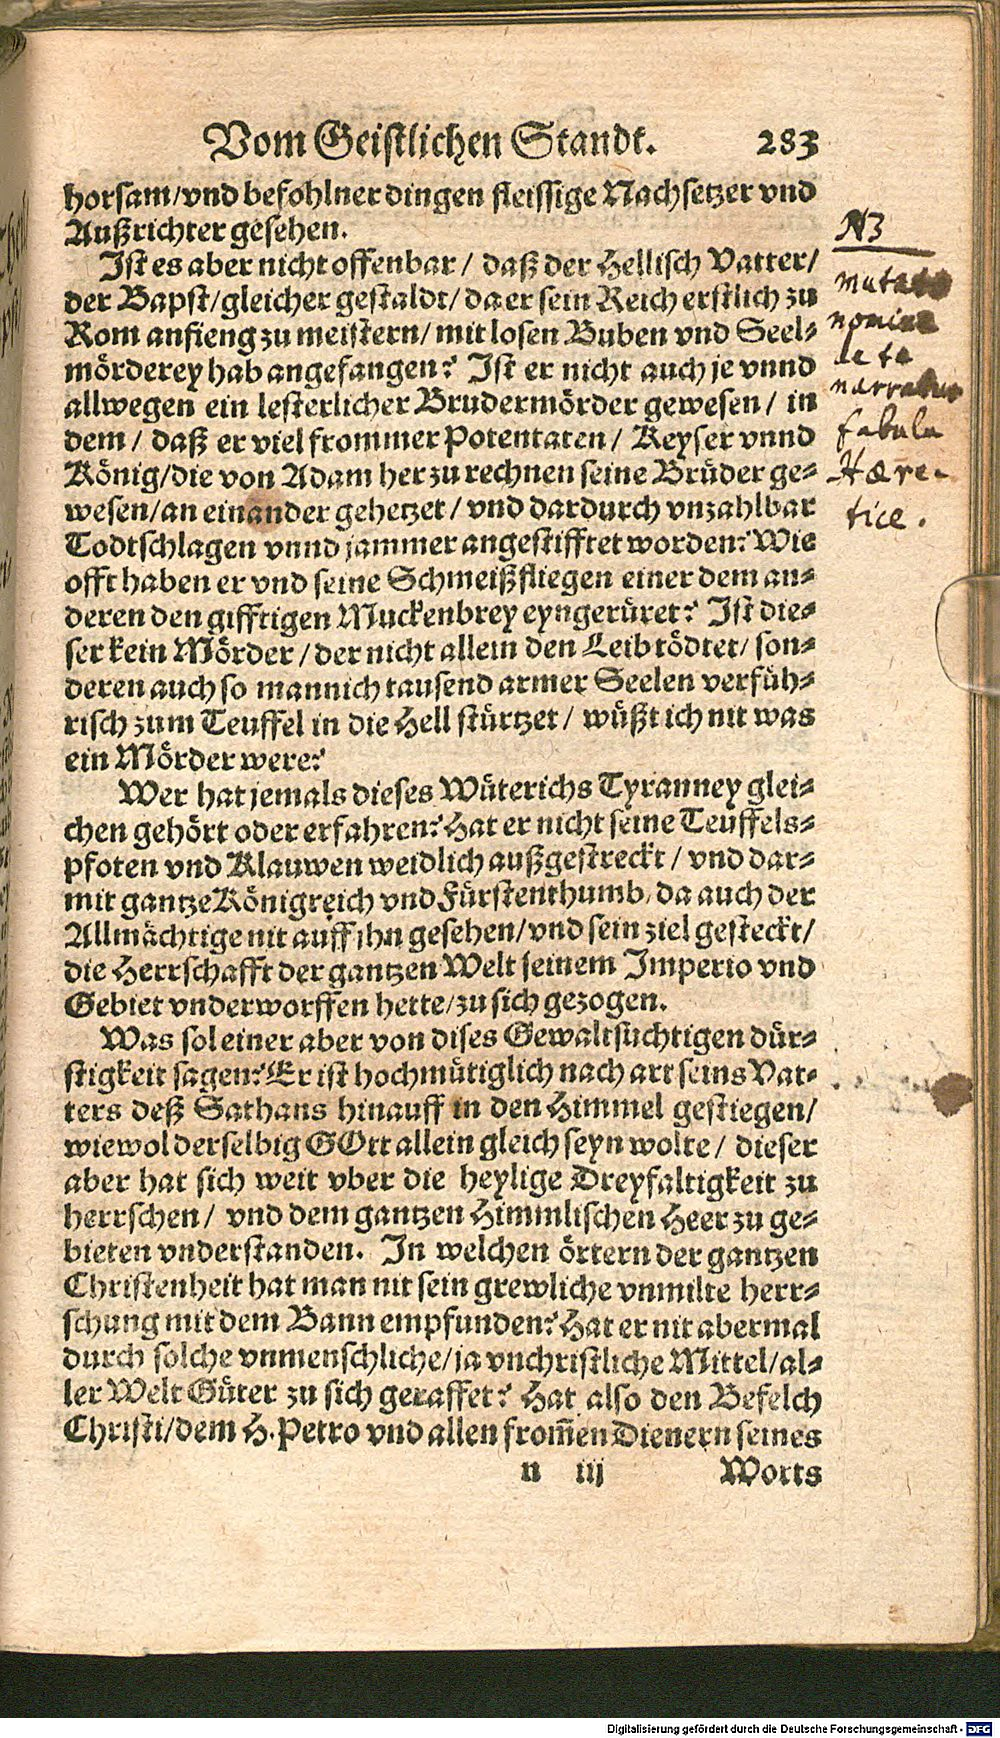 Vom Geistlichen Standt. 283
horsam/vnd befohlner dingen fleissige Nachsetzer vnd
Außrichter gesehen.
Ist es aber nicht offenbar/ daß der Hellisch Vatter/
der Bapst/gleicher gestaldt/da er sein Reich erstlich zu
Rom anfieng zu meistern/mit losen Buben vnd Seel-
mörderey hab angefangen? Ist er nicht auch je vnnd
allwegen ein lesterlicher Brudermörder gewesen/ in
dem/ daß er viel frommer Potentaten/ Keyser vnnd
König/die von Adam her zu rechnen seine Brüder ge-
wesen/an einander gehetzet/ vnd dardurch vnzahlbar
Todtschlagen vnnd jammer angestifftet worden? Wie
offt haben er vnd seine Schmeißfliegen einer dem an-
deren den gifftigen Muckenbrey eyngerüret? Ist die-
ser kein Mörder/der nicht allein den Leib tödtet/ son-
deren auch so mannich tausend armer Seelen verfüh-
risch zum Teuffel in die Hell stürtzet/ wüßt ich nit was
ein Mörder were?
Wer hat jemals dieses Wüterichs Tyranney glei-
chen gehört oder erfahren? Hat er nicht seine Teuffels-
pfoten vnd Klauwen weidlich außgestreckt/ vnd dar-
mit gantze Königreich vnd Fürstenthumb/da auch der
Allmächtige nit auff ihn gesehen/vnd sein ziel gesteckt/
die Herrschafft der gantzen Welt seinem Imperio vnd
Gebiet vnderworffen hette/zu sich gezogen.
Was sol einer aber von dises Gewaltsüchtigen dür-
stigkeit sagen? Er ist hochmütiglich nach art seins Vat-
ters deß Sathans hinauff in den Himmel gestiegen/
wiewol derselbig GOtt allein gleich seyn wolte/ dieser
aber hat sich weit vber die heylige Dreyfaltigkeit zu
herrschen/ vnd dem gantzen Himmlischen Heer zu ge-
bieten vnderstanden. In welchen örtern der gantzen
Christenheit hat man nit sein grewliche vnmilte herr-
schung mit dem Bann empfunden? Hat er nit abermal
durch solche vnmenschliche/ja vnchristliche Mittel/al-
ler Welt Güter zu sich geraffet? Hat also den Befelch
Christi/dem H. Petro vnd allen from̃en Dienern seines
n iij Worts
mutato
nomine
de te
narratur
fabula
Hære-
tice.
Digitalisierung gefördert durch die Deutsche Forschungsgemeinschaft - DFG